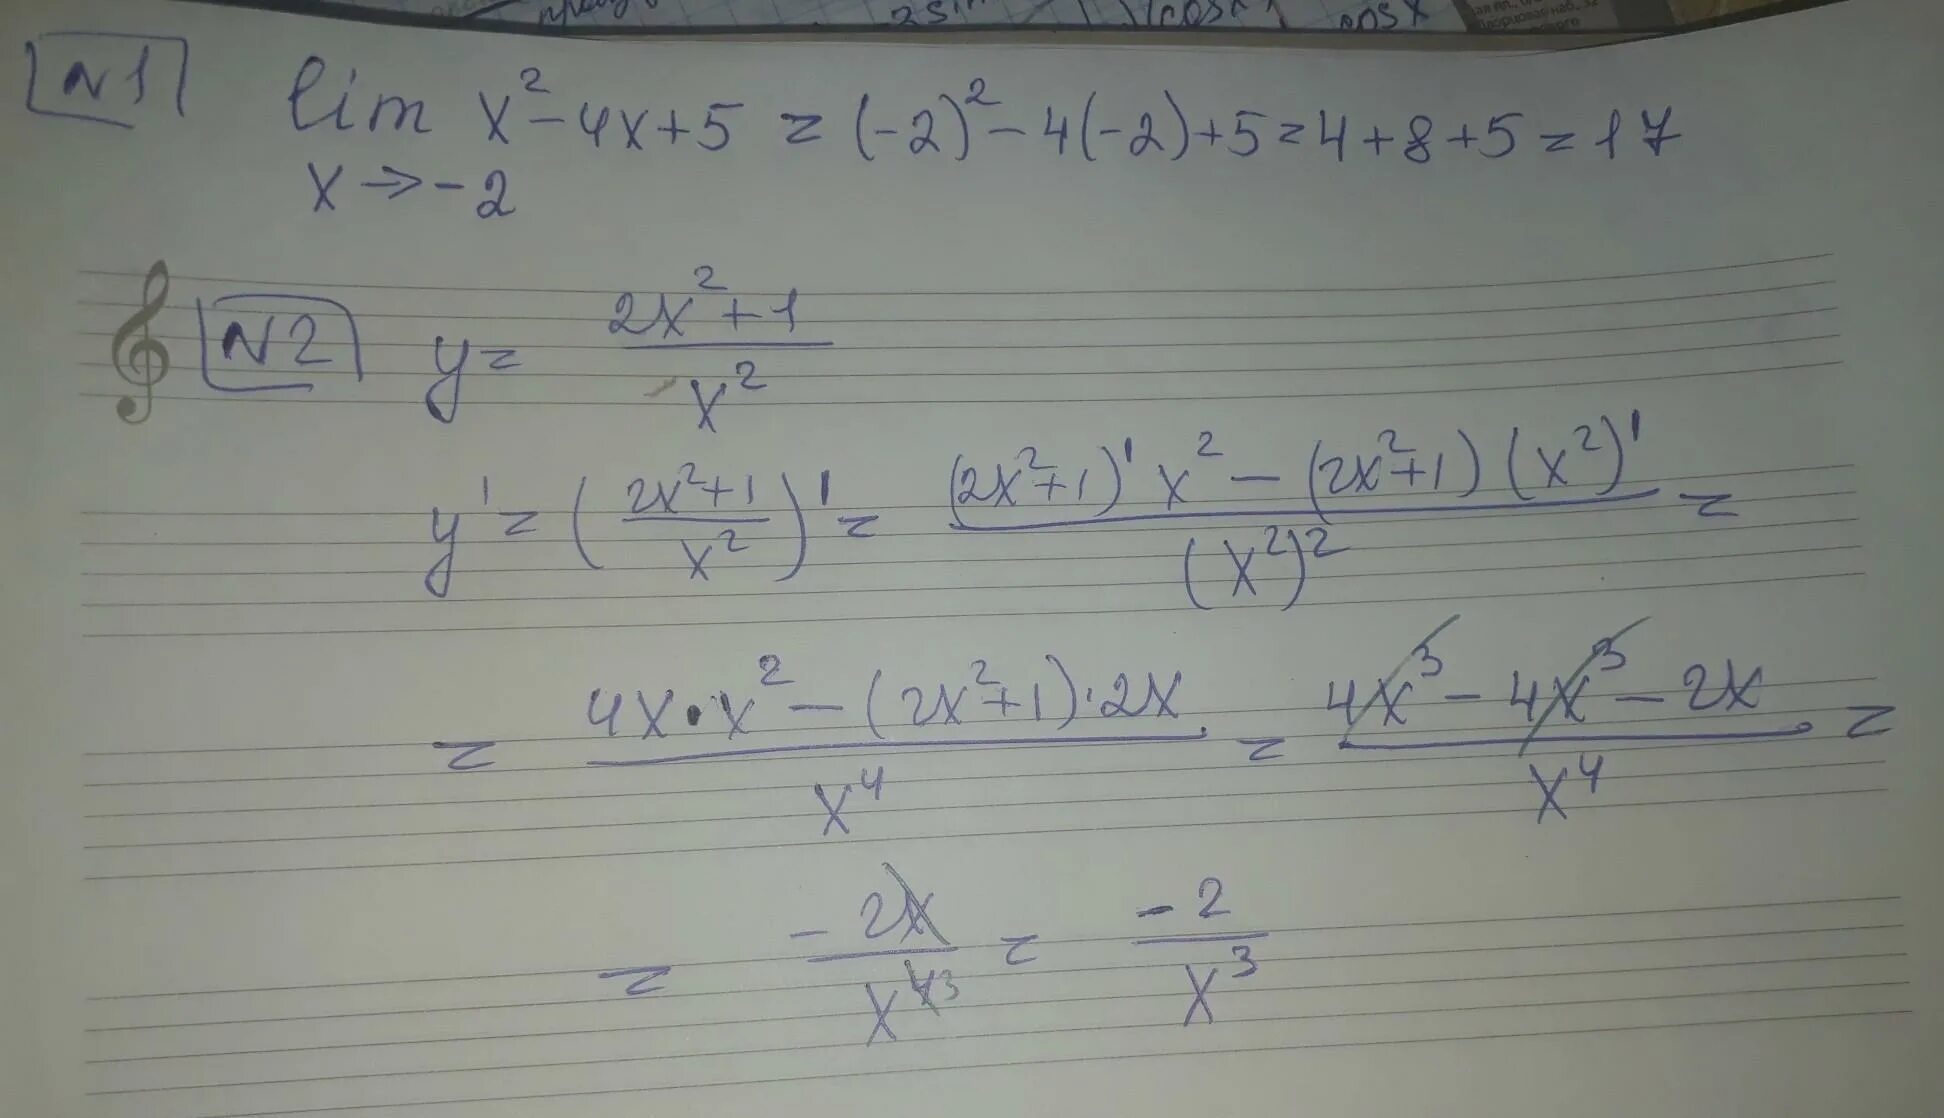 2sin cosx cosx
№1 lim x² - 4x + 5 = (-2)² - 4(-2) + 5 = 4 + 8 + 5 = 17
x → -2
№2 y = (2x² + 1) / x²
y' = ((2x² + 1) / x²)' = ((2x² + 1)' x² - (2x² + 1)(x²)') / (x²)² =
= (4x · x² - (2x² + 1) · 2x) / x⁴ = (4x³ - 4x³ - 2x) / x⁴ =
= -2x / x⁴ ³ = -2 / x³